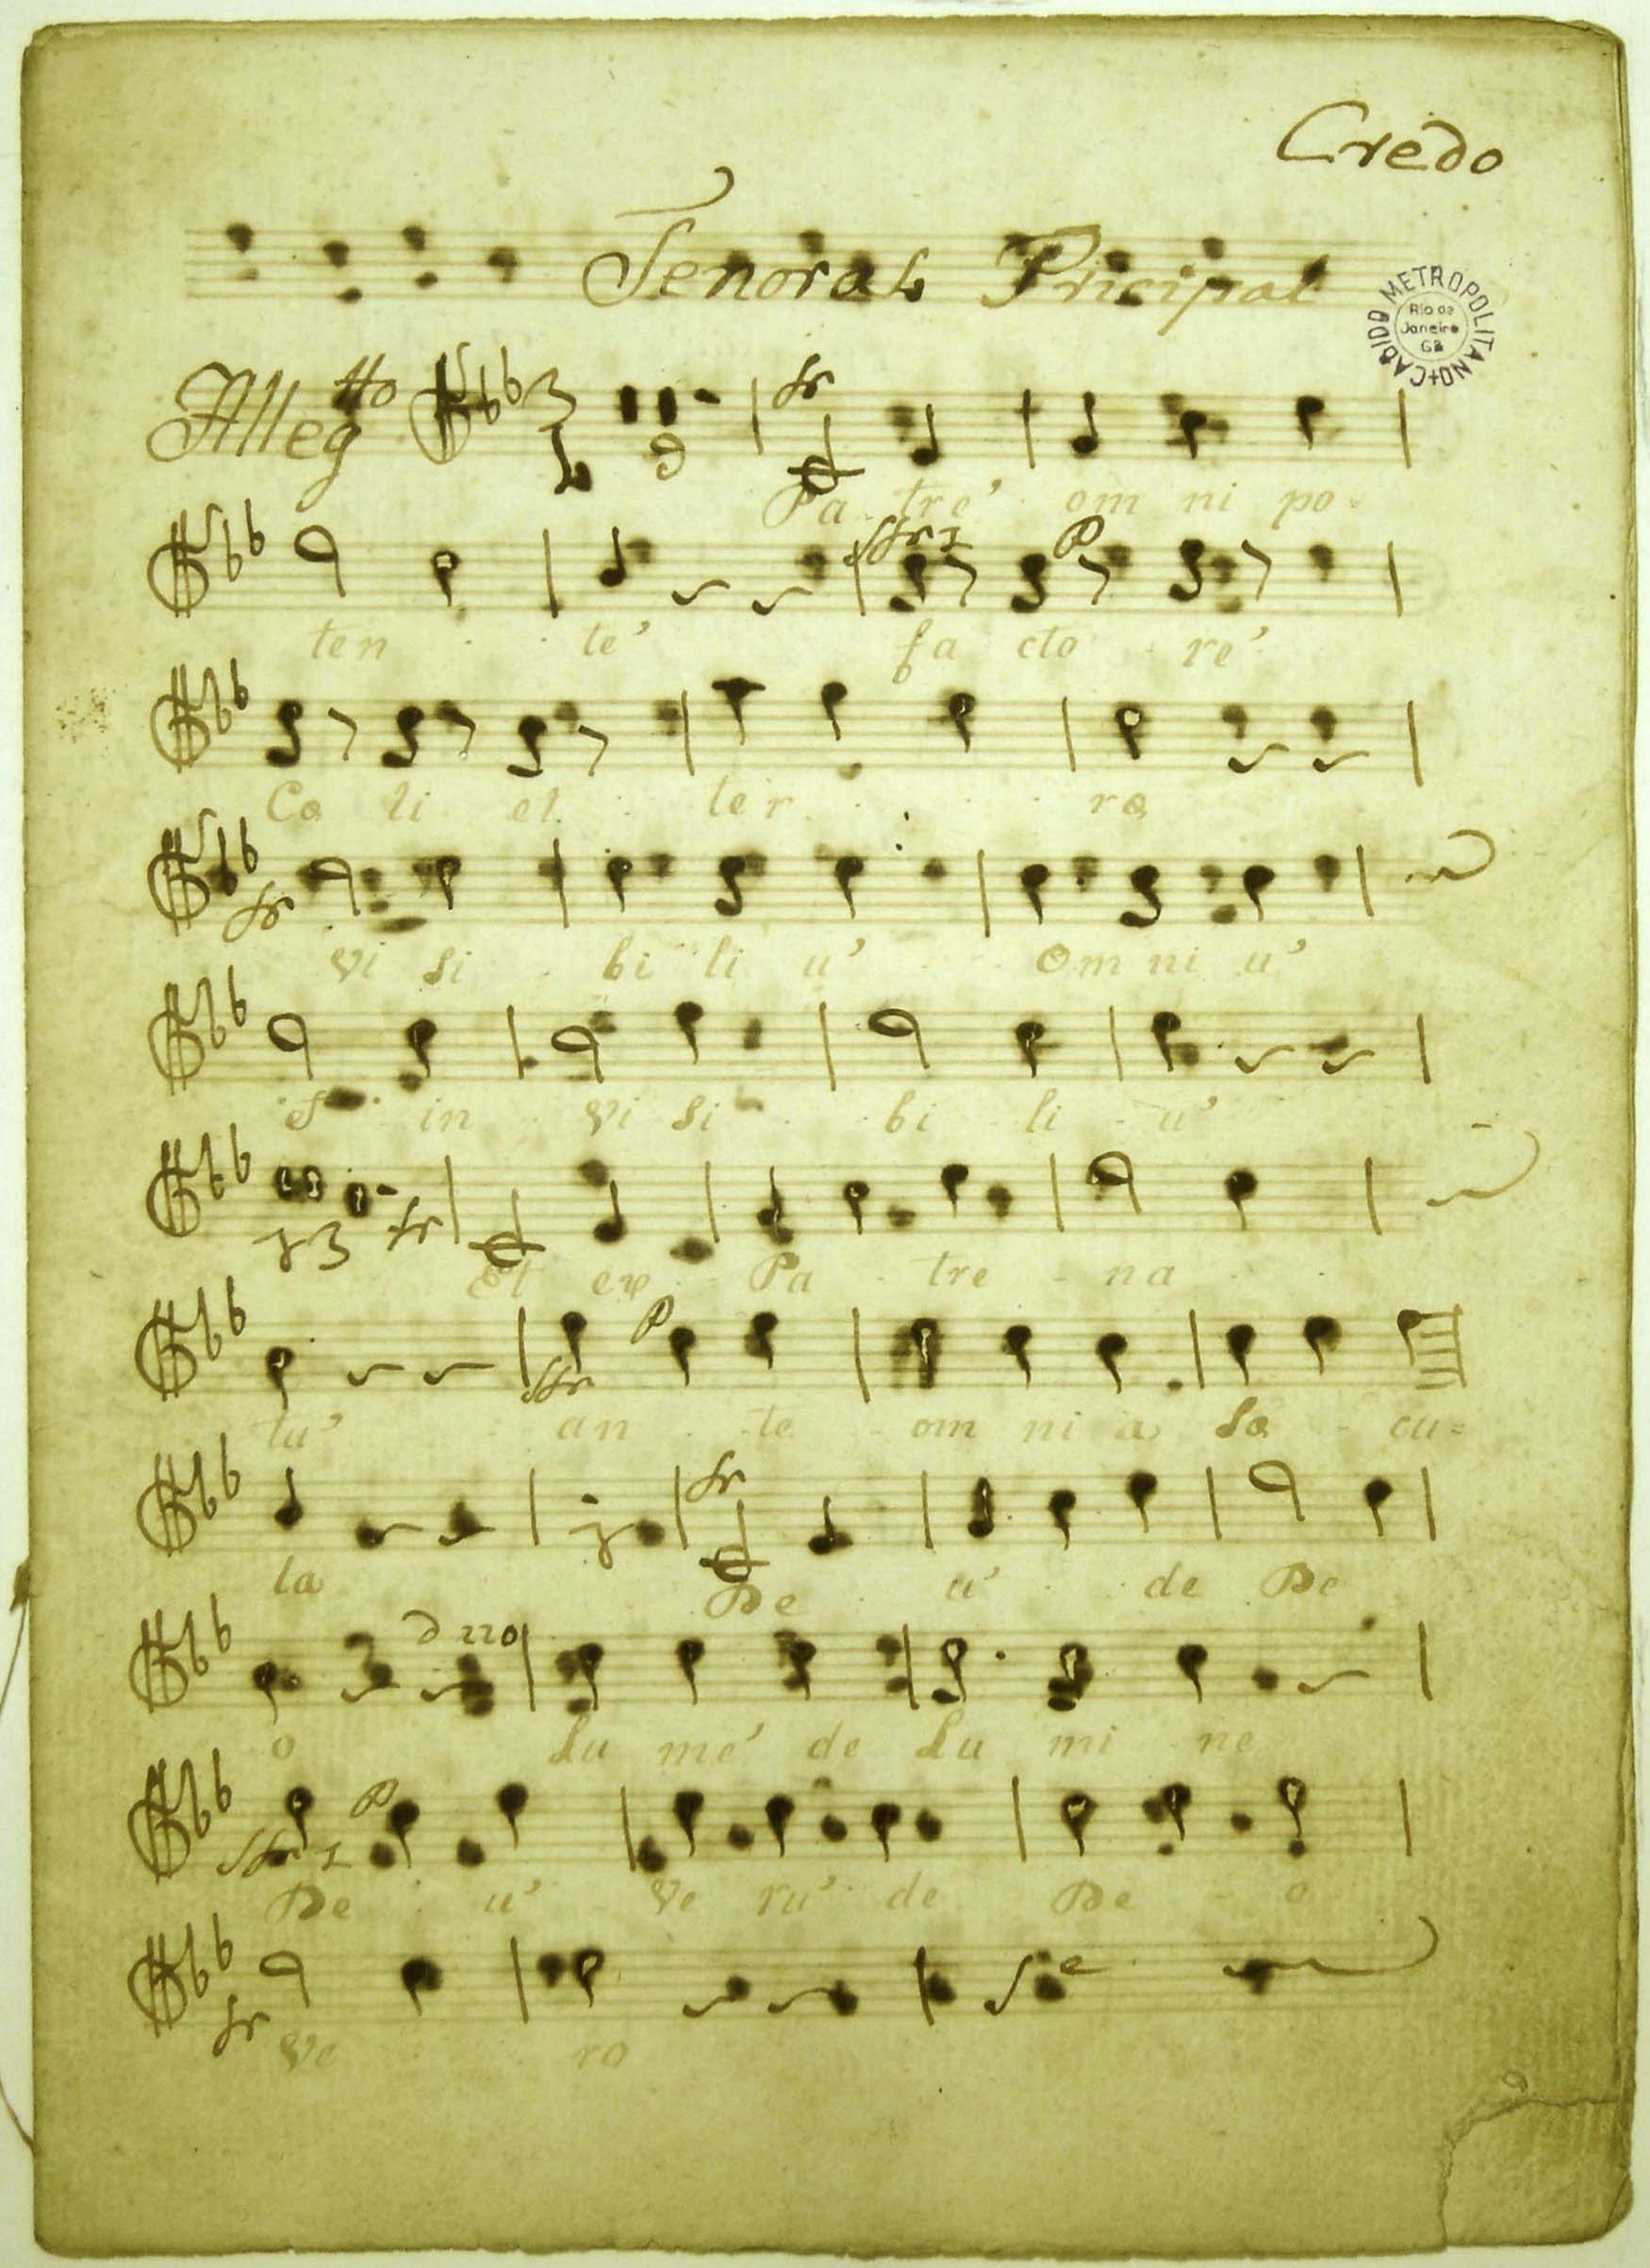 Credo
Tenoral Pricipal
CABIDO METROPOLITANO
Rio de
Janeiro
GB
Alleg tto
fr
Pa tre' om ni po =
ffr P
ten te' fa cto re'
Co li et ter ra
fr
vi si bi li u' Om ni u'
in vi si bi li u'
13 fr
Et ex Pa tre na
ffr P
tu' an te om ni a So cu =
fr
la De u' de De
o Lu me' de Lu mi ne
ffr P
De u' Ve ru' de De o
fr
Ve ro